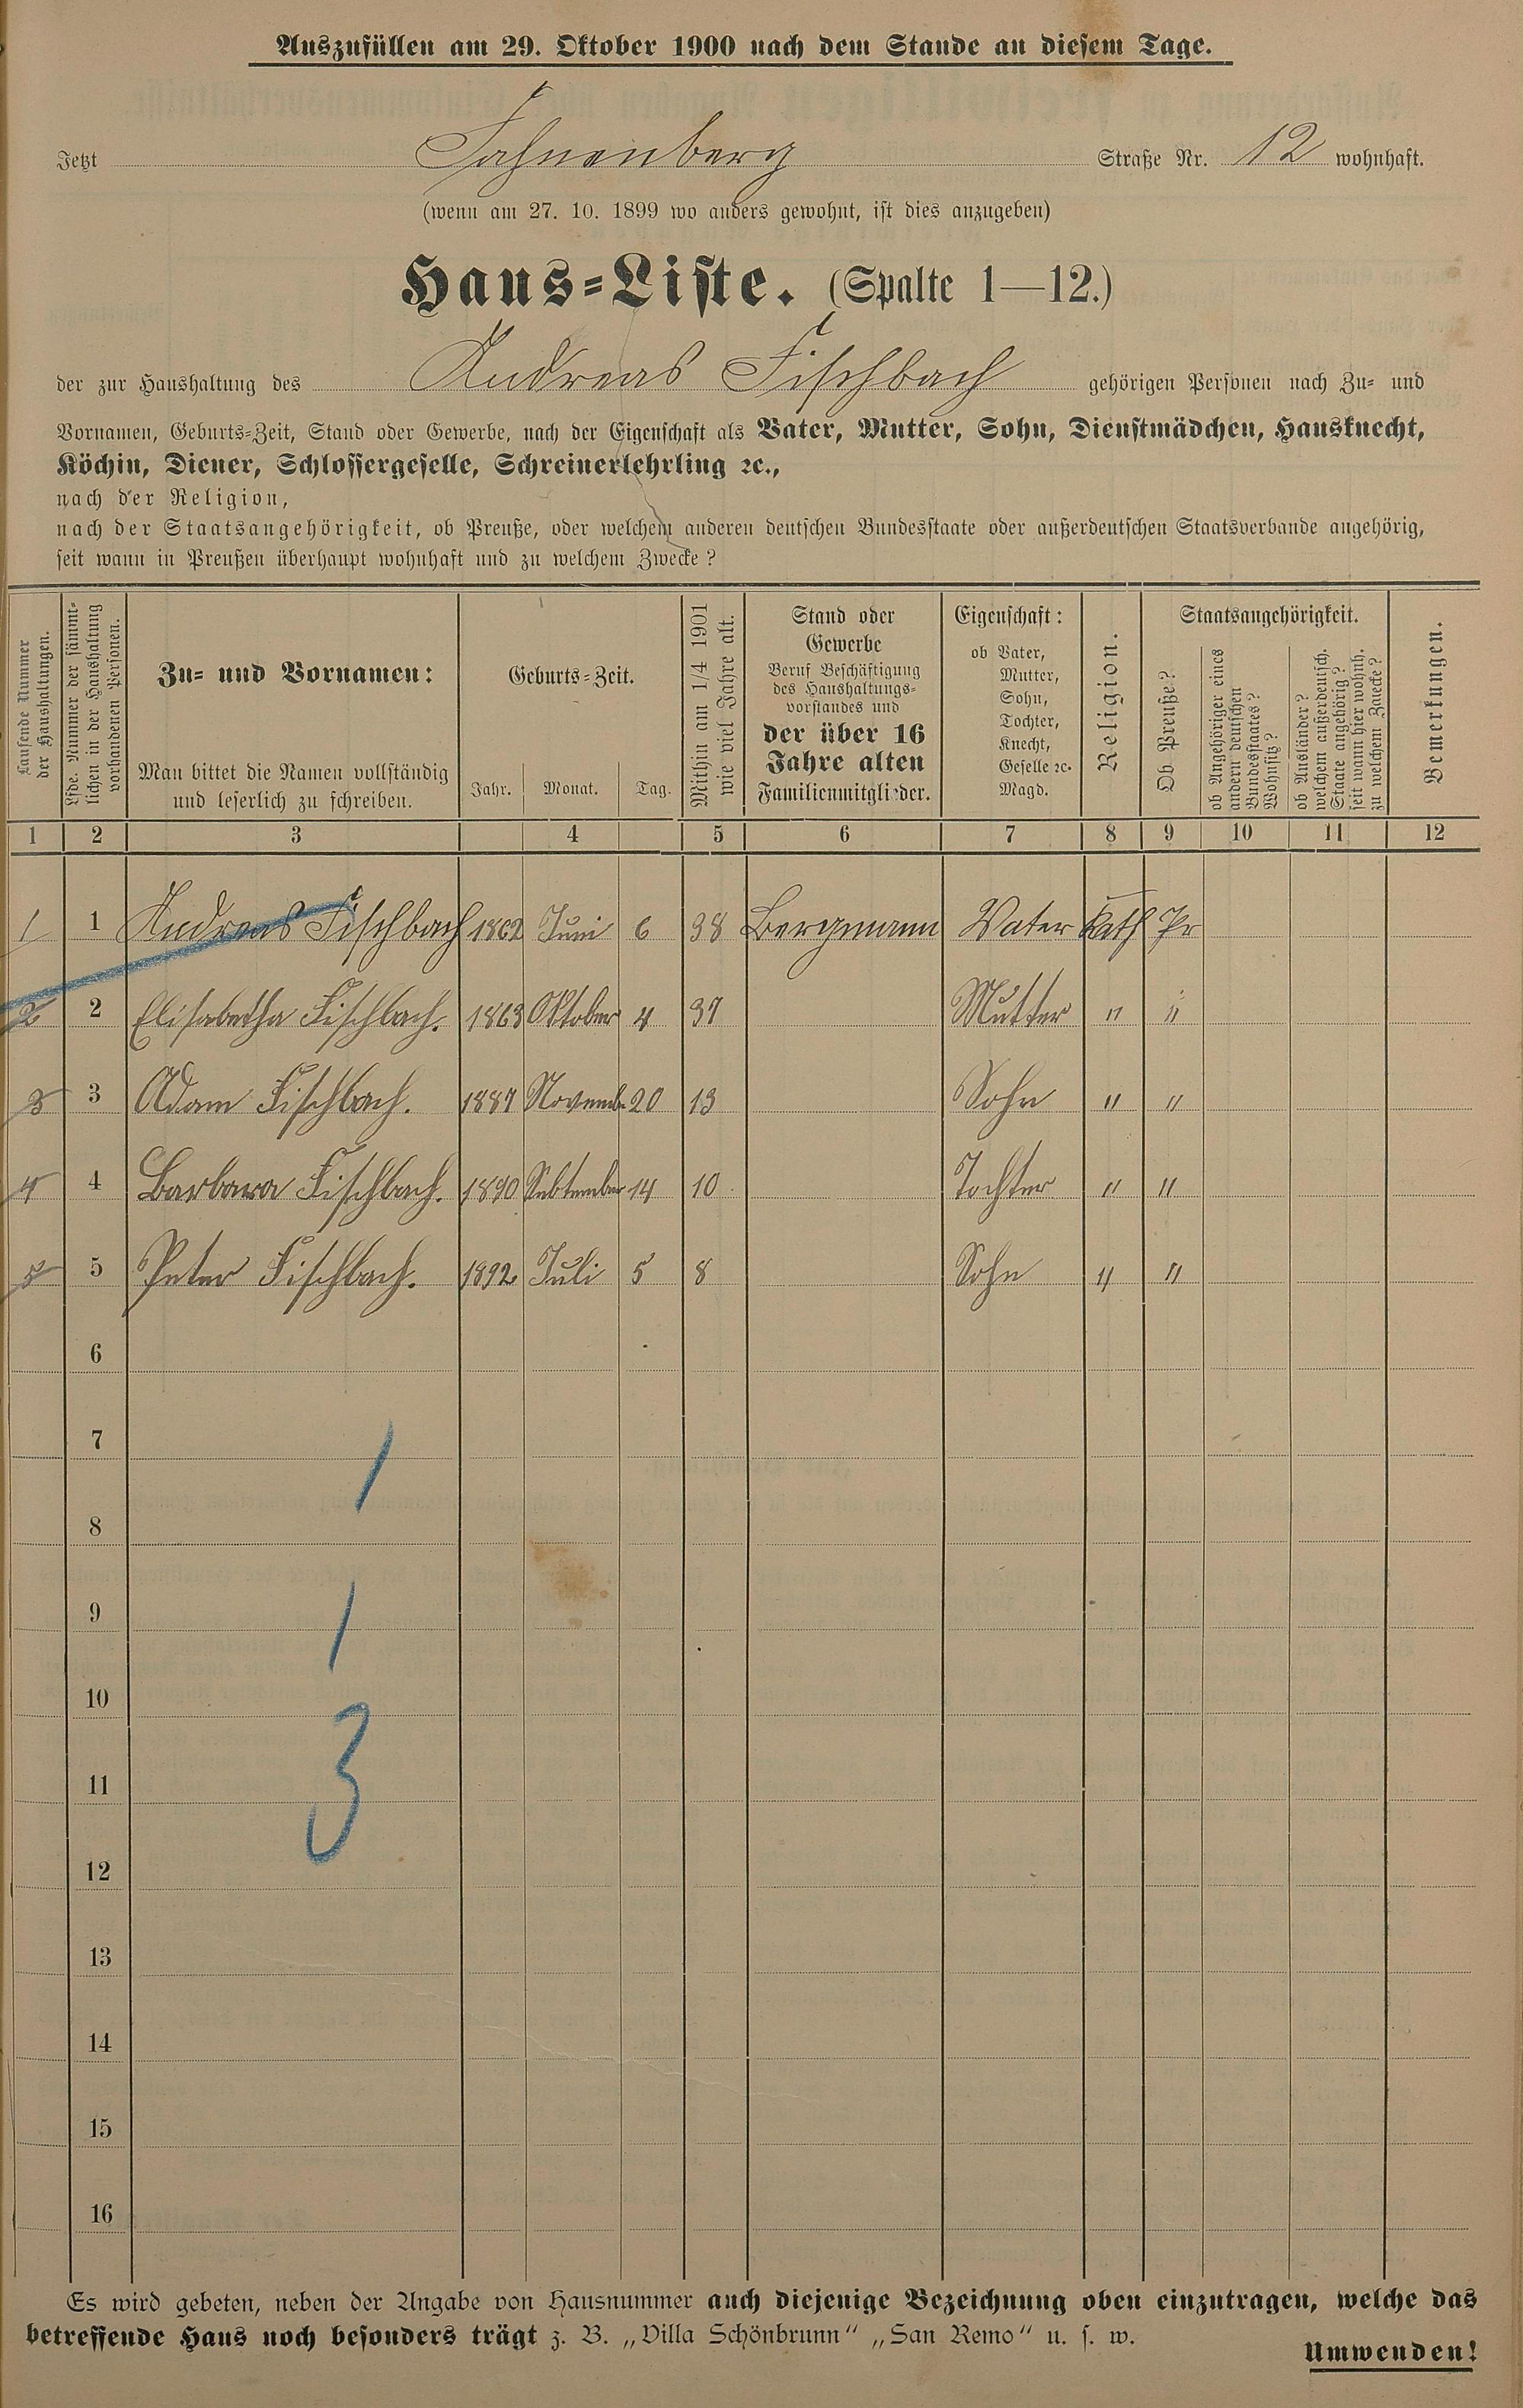 Auszufüllen am 29. Oktober 1900 nach dem Stande an diesem Tage.
Jetzt Fahnenberg Straße Nr. 12 wohnhaft.
(wenn am 27. 10. 1899 wo anders gewohnt, ist dies anzugeben)
Haus-Liste. (Spalte 1—12.)
der zur Haushaltung des Andreas Fischbach gehörigen Personen nach Zu- und
Vornamen, Geburts-Zeit, Stand oder Gewerbe, nach der Eigenschaft als Vater, Mutter, Sohn, Dienstmädchen, Hausknecht,
Köchin, Diener, Schlossergeselle, Schreinerlehrling ꝛc.,
nach der Religion,
nach der Staatsangehörigkeit, ob Preuße, oder welchem anderen deutschen Bundesstaate oder außerdeutschen Staatsverbande angehörig,
seit wann in Preußen überhaupt wohnhaft und zu welchem Zwecke?
Laufende Nummer
der Haushaltungen.
Lfde. Nummer der sämmt-
lichen in der Haushaltung
vorhandenen Personen.
Zu- und Vornamen:
Man bittet die Namen vollständig
und leserlich zu schreiben.
Geburts-Zeit.
Jahr. Monat. Tag.
Mithin am 1/4 1901
wie viel Jahre alt.
Stand oder
Gewerbe
Beruf Beschäftigung
des Haushaltungs-
vorstandes und
der über 16
Jahre alten
Familienmitglieder.
Eigenschaft:
ob Vater,
Mutter,
Sohn,
Tochter,
Knecht,
Geselle ꝛc.
Magd.
Religion.
Staatsangehörigkeit.
Ob Preuße?
ob Angehöriger eines
andern deutschen
Bundesstaates?
Wohnsitz?
ob Ausländer?
welchem außerdeutsch.
Staate angehörig?
seit wann hier wohnh.
zu welchem Zwecke?
Bemerkungen.
1 2 3 4 5 6 7 8 9 10 11 12
1 1 Andreas Fischbach 1862 Juni 6 38 Bergmann Vater Kath Pr
2 2 Elisabetha Fischbach. 1863 Oktober 4 37 Mutter " "
3 3 Adam Fischbach. 1887 Novemb. 20 13 Sohn " "
4 4 Barbara Fischbach. 1890 Sebtember 14 10 Tochter " "
5 5 Peter Fischbach. 1892 Juli 5 8 Sohn " "
6
7
1
8
9
1
10
3
11
12
13
14
15
16
Es wird gebeten, neben der Angabe von Hausnummer auch diejenige Bezeichnung oben einzutragen, welche das
betreffende Haus noch besonders trägt z. B. „Villa Schönbrunn“ „San Remo“ u. s. w.
Umwenden!